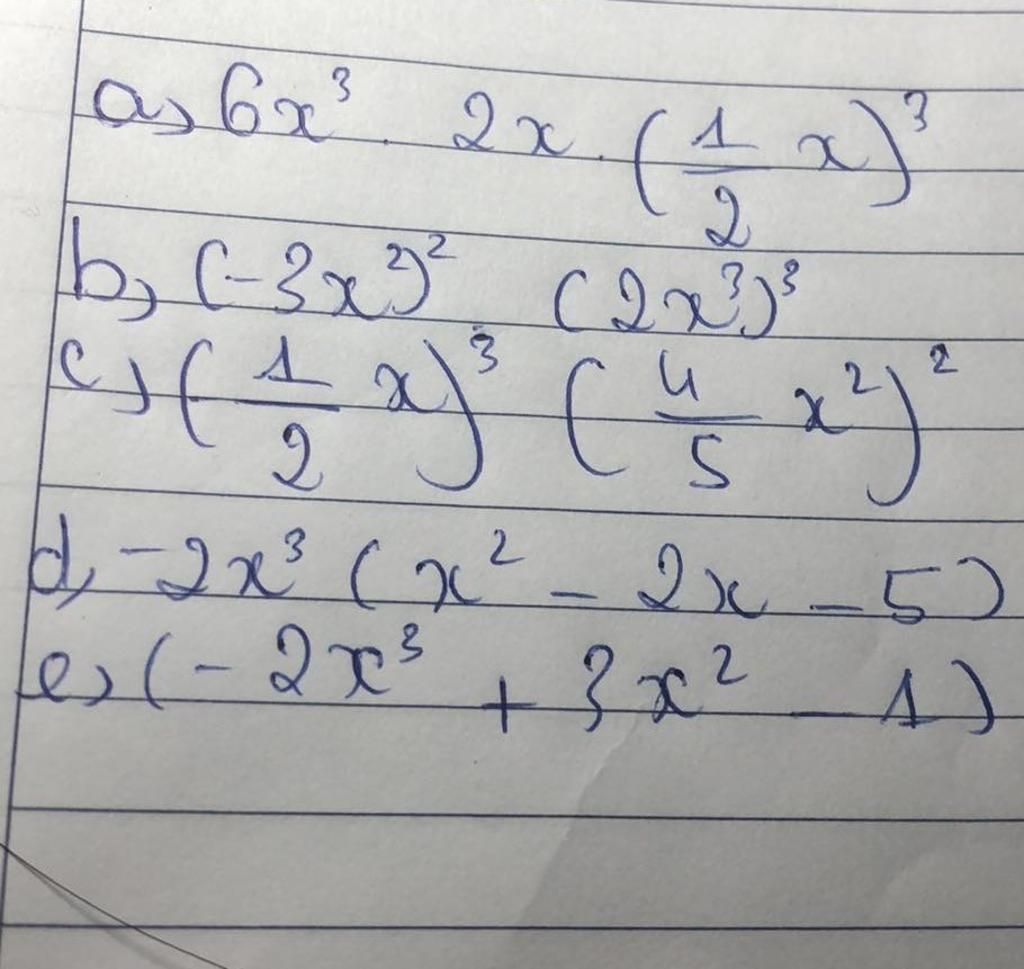 a, 6x³ . 2x . (1/2 x)³
b, (-3x²)² . (2x³)³
c, (1/2 x)³ (4/5 x²)²
d, -2x³ (x² - 2x - 5)
e, (-2x³ + 3x² - 1)